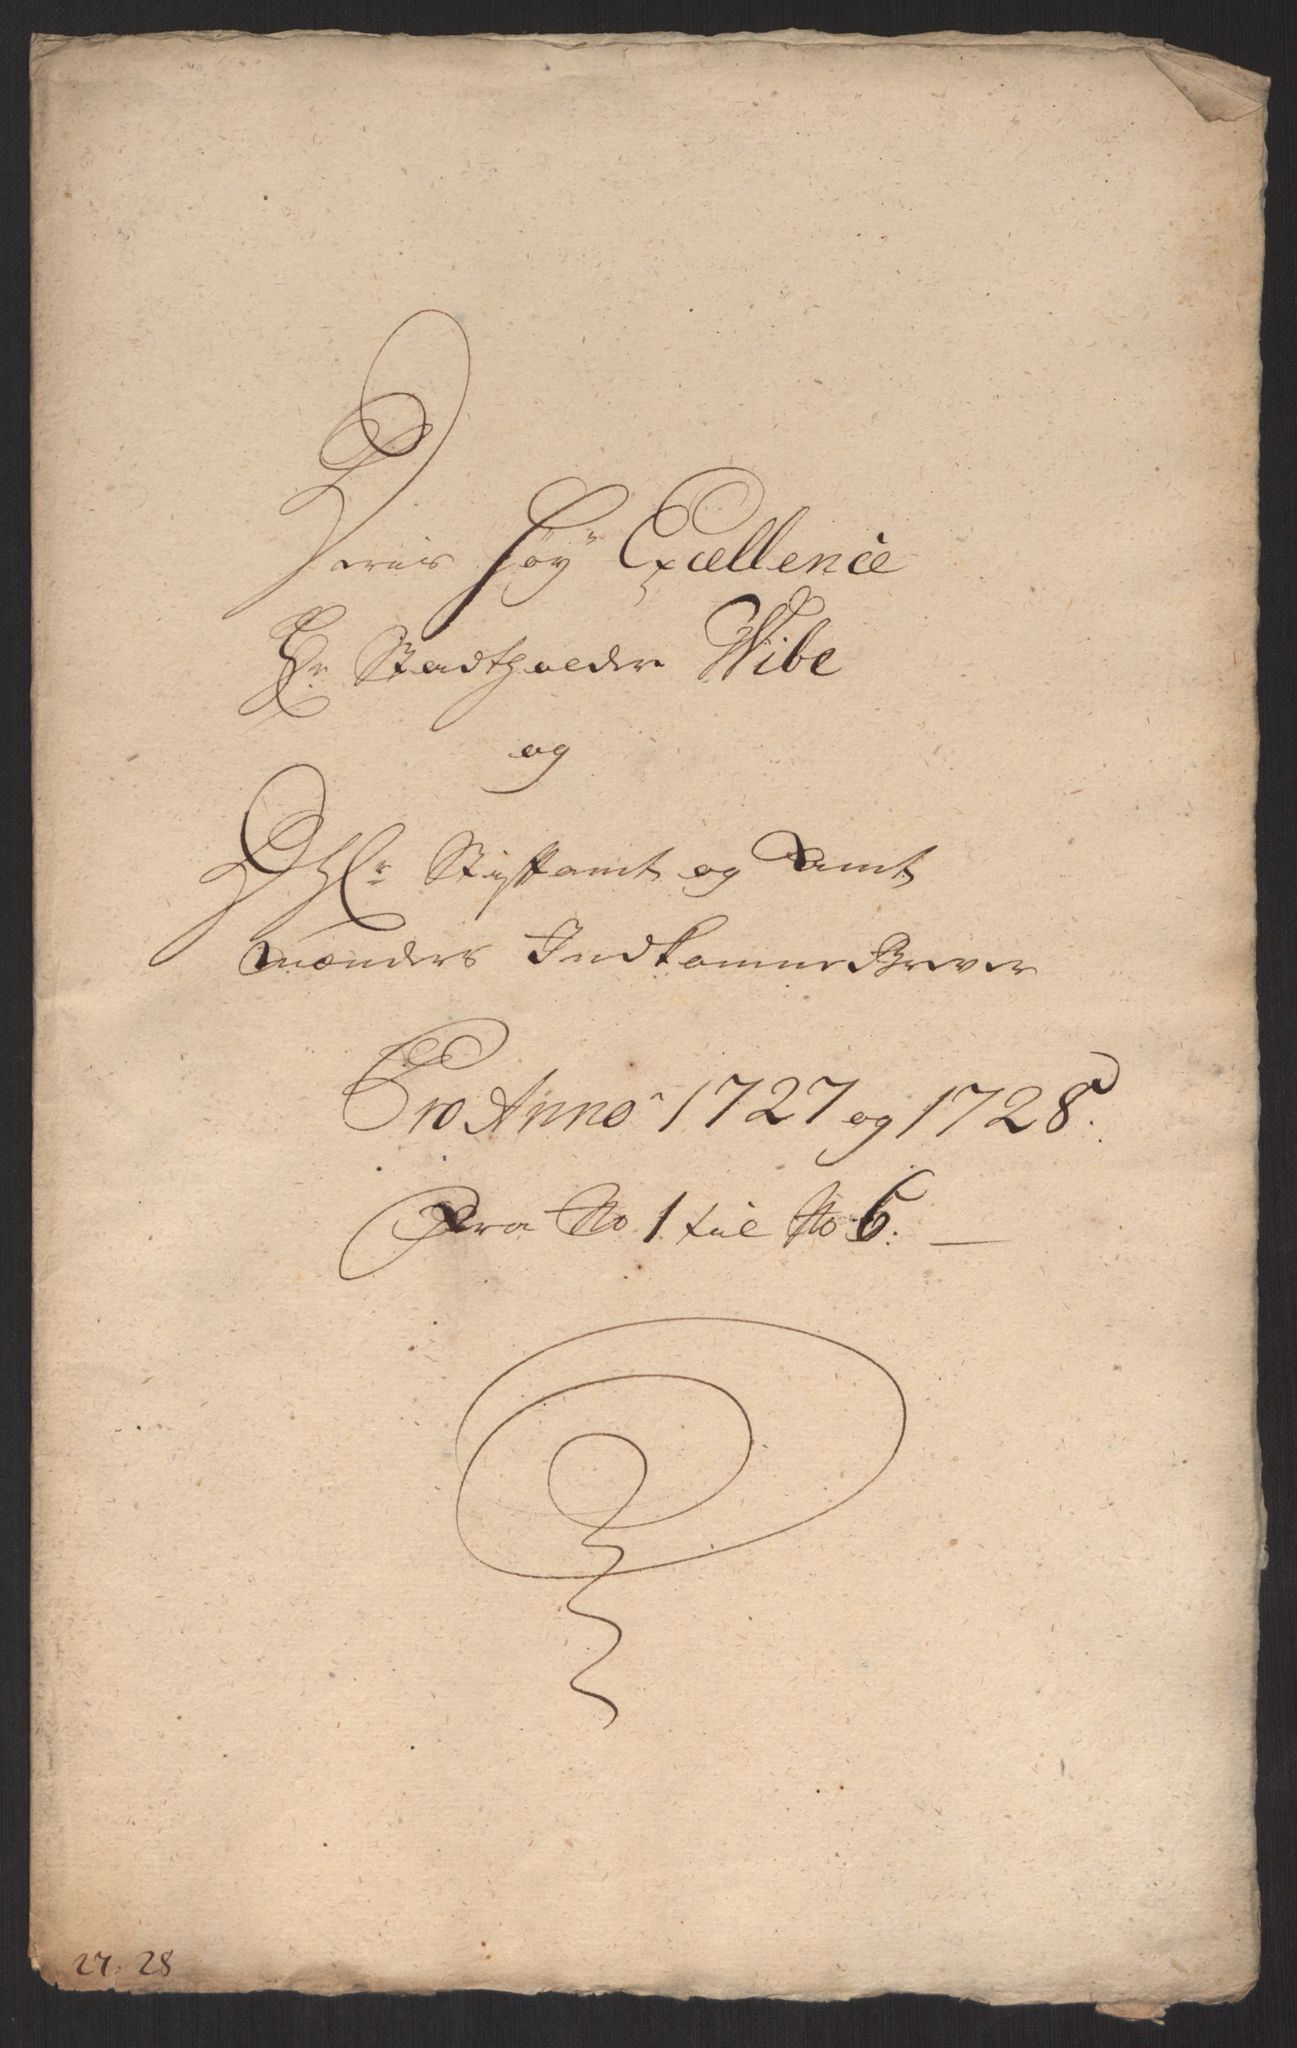 Deris Höy Excellence
Hr Stadtholder Wibe
og
Hr Stiftamt og Amt
mænders Indkomne Brever
Pro Anno 1727 og 1728.
Fra No 1 til No 6.
27. 28